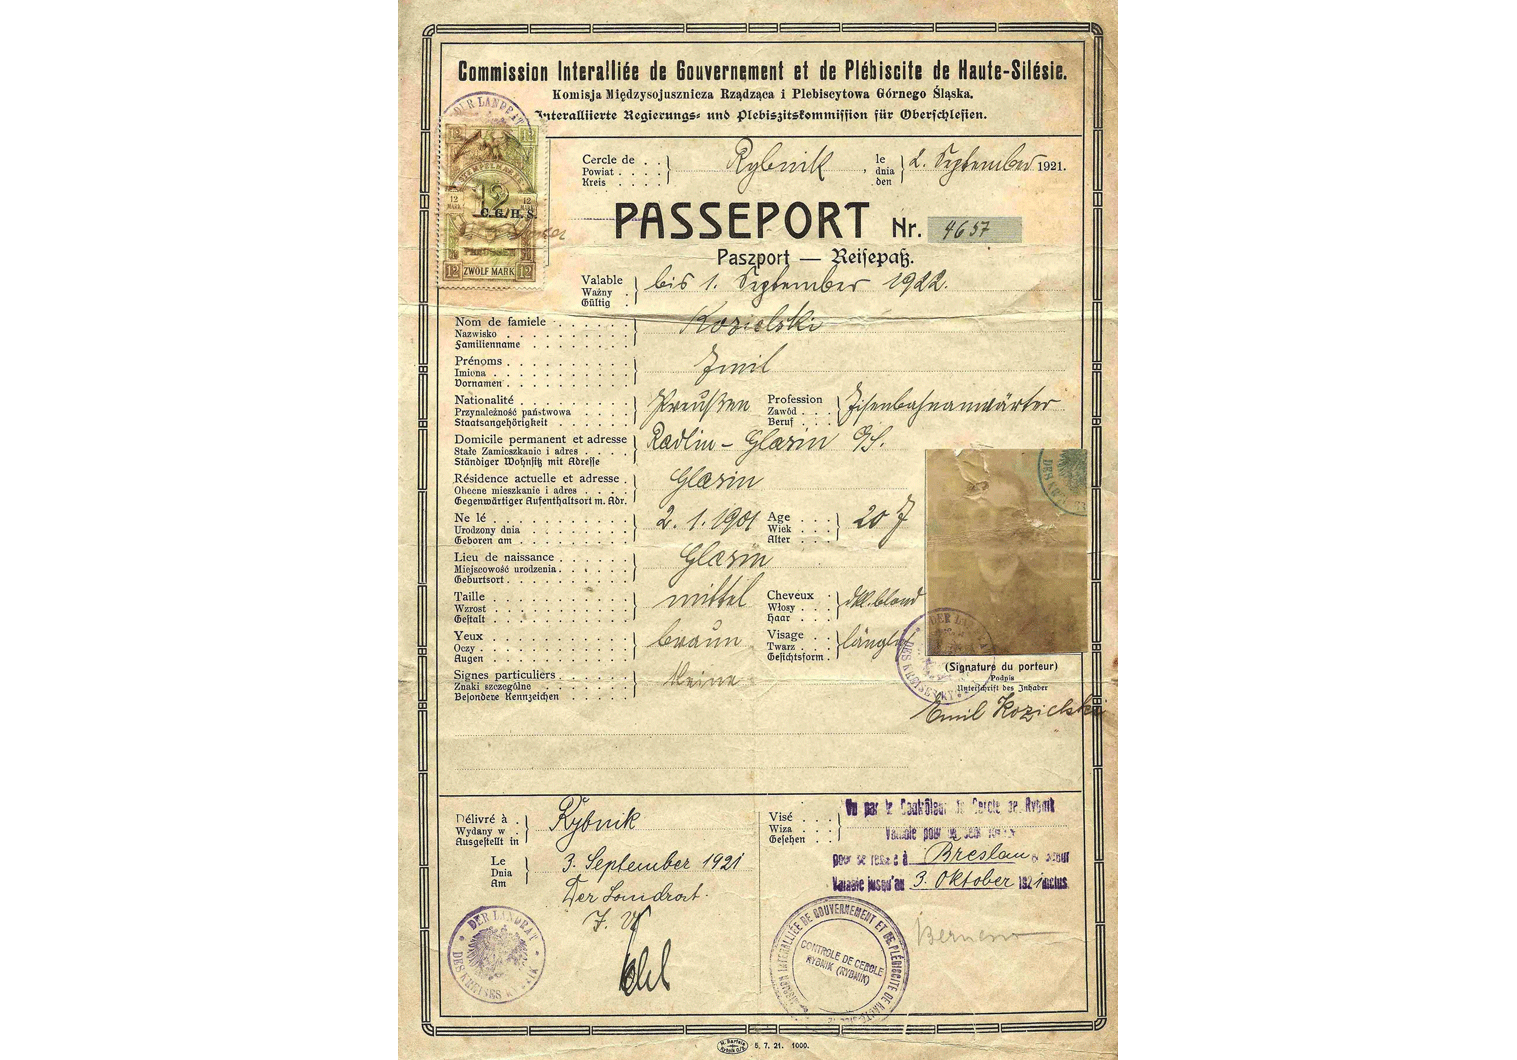 Commission Interalliée de Gouvernement et de Plébiscite de Haute-Silésie.
Komisja Międzysojusznicza Rządząca i Plebiscytowa Górnego Śląska.
Interalliierte Regierungs- und Plebiszitskommission für Oberschlesien.
DER LANDRAT
STEMPELMARKE
12
12 MARK
12 MARK
C.G./H.S.
PREUSSEN
12 ZWÖLF MARK 12
Cercle de . . Rybnik le 2. September 1921.
Powiat . . . . dnia
Kreis . . . . . den
PASSEPORT Nr. 4657
Paszport — Reisepaß.
Valable bis 1. September 1922.
Ważny .
Gültig .
Nom de famiele Kozielski
Nazwisko
Familienname
Prénoms Emil
Imiona
Vornamen
Nationalité Preußen Profession Eisenbahnanwärter
Przynależność państwowa Zawód
Staatsangehörigkeit Beruf
Domicile permanent et adresse Radlin - Glasin O/S.
Stałe Zamieszkanie i adres
Ständiger Wohnsitz mit Adresse
Résidence actuelle et adresse . Glasin
Obecne mieszkanie i adres
Gegenwärtiger Aufenthaltsort m. Adr.
Ne lé 2. 1. 1901 Age 20 J
Urodzony dnia Wiek
Geboren am Alter
Lieu de naissance Glasin
Miejscowość urodzenia
Geburtsort
Taille mittel Cheveux dkl. blond
Wzrost Włosy
Gestalt Haar
Yeux braun Visage längl.
Oczy Twarz
Augen Gesichtsform
Signes particuliers Keine
Znaki szczególne
Besondere Kennzeichen
(Signature du porteur)
Podpis
Unterschrift des Inhaber
Emil Kozielski
Délivré à . Rybnik
Wydany w .
Ausgestellt in
Le 3. September 1921
Dnia
Am
Der Landrat.
J. V.
DER LANDRAT DES KREISES RYBNIK
Visé
Wiza
Gesehen
Vu par le Contrôleur du Cercle de Rybnik
Valable pour un seul
pour se rendre à Breslau & retour
Valable jusqu'au 3. Oktober 1921 inclus.
COMMISSION INTERALLIÉE DE GOUVERNEMENT ET DE PLÉBISCITE DE HAUTE-SILÉSIE
CONTROLE DE CERCLE
RYBNIK (RYBNIK)
5. 7. 21. 1000.